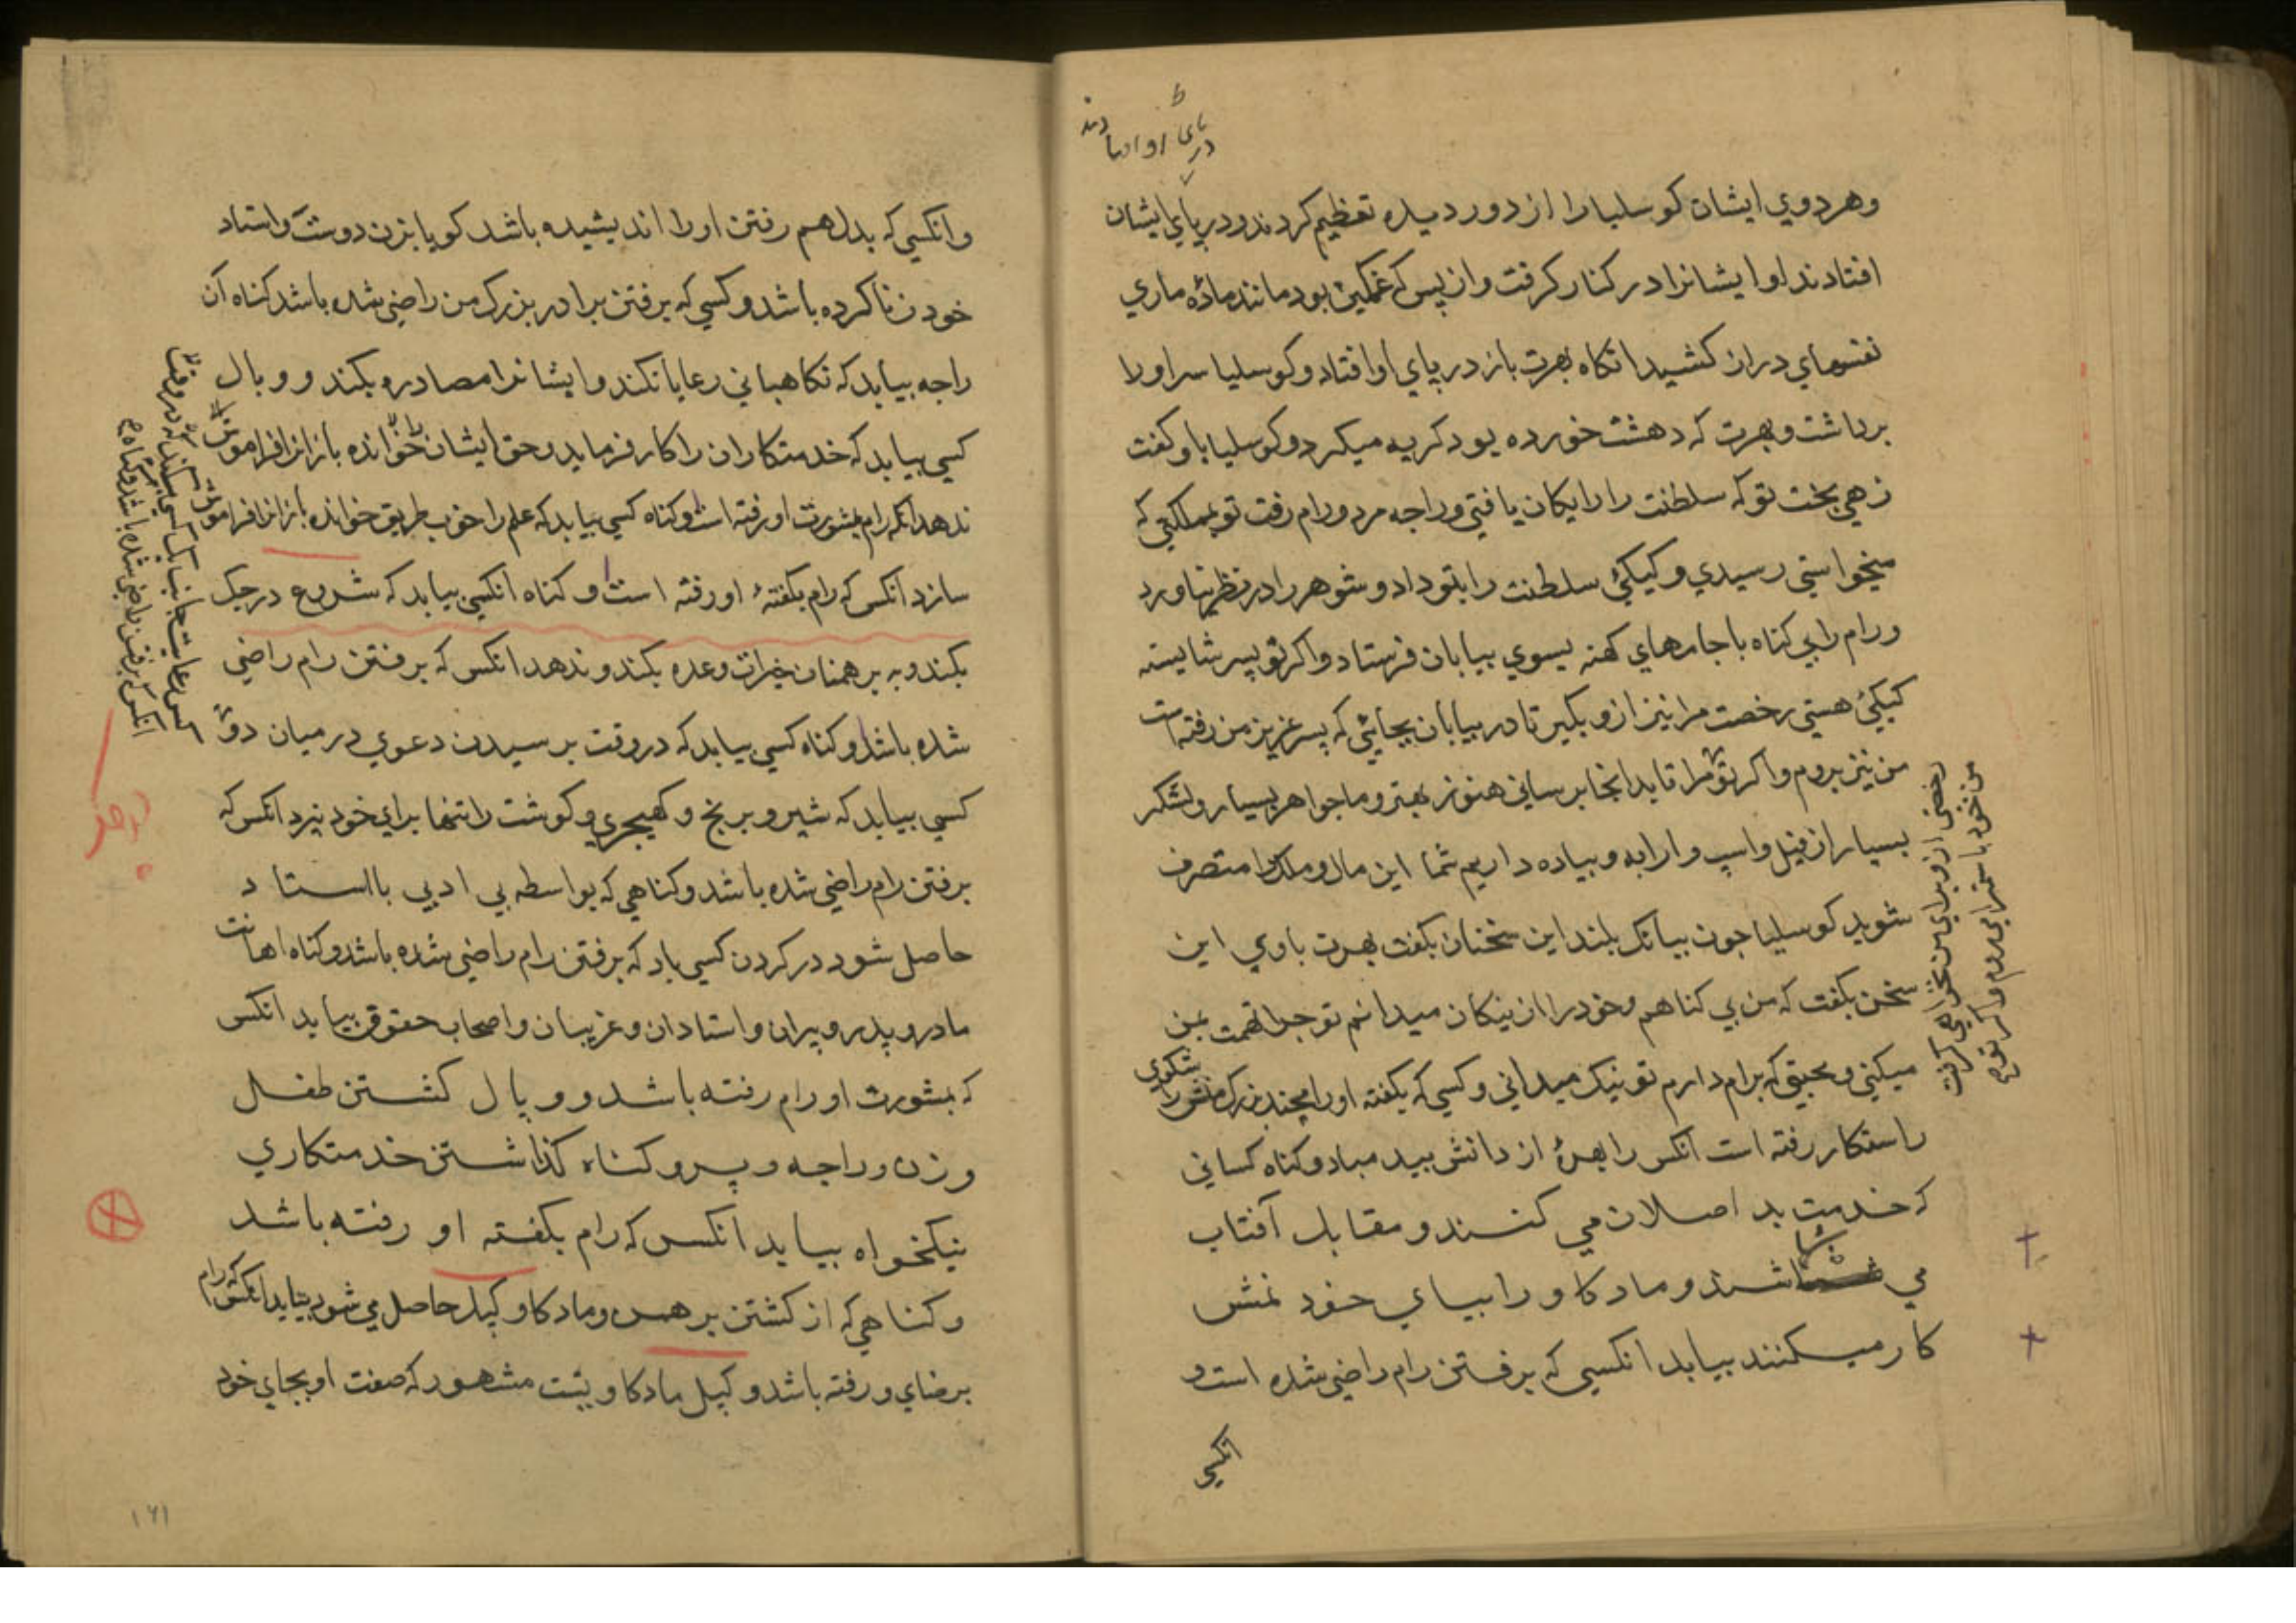 در پای او افتادند
وهردوي ایشان کوسلیارا از دور دیده تعظیم کردند ودر پای ایشان
افتادند او ایشانرا در کنار کرفت وازپس که غمکین بود مانند ماده ماري
نفسهاي دراز کشید انکاه بهرت باز در پاي او افتاد و کوسلیا سر اورا
برداشت وبهرت که دهشت خورده بود کریه میکرد و کوسلیا باو کفت
زهي بخت تو که سلطنت را رایکان یافتي وراجه مرد ورام رفت تو بمملکتي که
میخواستي رسیدي وکیکئ سلطنت را بتو داد وشوهر را در نظر نیاورد
ورام را بي کناه با جامهاي کهنه بسوي بیابان فرستاد واکر تو پسر شایسته
کیکئ هستي رخصت مرا نیز ازو بکیر تا در بیابان بجائي که پسر عزیز من رفته است
من نیز بروم واکر تو مرا تا بدانجا برساني هنوز بهتر وما جواهر بسیار ولشکر
بسیار از فیل واسپ وارابه وپیاده داریم شما این مال وملک را متصرف
شوید کوسلیا چون ببانک بلند این سخنان بکفت بهرت باوي این
سخن بکفت که من بي کناهم وخود را از نیکان میدانم تو چرا تهمت بمن
میکني ومحبتي که برام دارم تو نیک میداني وکسي که بکفته او رامچند بزرک منش
راستکار رفته است انکس را بهرۀ از دانش بید مباد وکناه کساني
که خدمت بد اصلان مي کنند ومقابل آفتاب
مي شاشند وماد کاو را بپاي خود
کار میکنند بیابد انکسي که برفتن رام راضي شده است و
انکسي
رخصتي ازو براي من نخواهي کرفت
من خود با سمترا مي روم واکر تو مرا
وانکسي که بدل هم رفتن اورا اندیشیده باشد کویا بزن دوست واستاد
خود زنا کرده باشد وکسي که برفتن برادر بزرک من راضي شده باشد کناه آن
راجه بیابد که نکاهباني رعایا نکند وایشانرا مصادره بکند ووبال
کسي بیابد که خدمتکاران را کار فرماید وحق ایشان
ندهد انکه رام بمشورت او رفته است وکناه کسي بیابد که علم را خوب طریق خوانده باز انرا فراموش
سازد انکس که رام بکفتۀ او رفته است وکناه انکسي بیابد که شروع در جک
بکند وبه برهمنان خیرات وعده بکند وندهد انکس که برفتن رام راضي
شده باشد وکناه کسي بیابد که در وقت برسیدن دعوي درمیان دو
کسي بیابد که شیر وبرنج وکهیچري وکوشت را تنها براي خود پزد انکس که
برفتن رام راضي شده باشد وکناهي که بواسطه بي ادبي بااستاد
حاصل شود در کردن کسي باد که برفتن رام راضي شده باشد وکناه اهانت
مادر وپدر وپیران واستادان وغریبان واصحاب حقوق بیابد انکس
که بمشورت او رام رفته باشد ووبال کشتن طفل
وزن وراجه وپیر وکناه کذاشتن خدمتکاري
نیکخواه بیابد انکس که رام بکفته او رفته باشد
وکناهي که از کشتن برهمن وماد کاو کپل حاصل مي شود بیابد انکس که رام
برضاي و رفته باشد وکپل ماد کاویست مشهور که صفت او بجاي خود
کس رعایت جانب یک کسي بکند که در وقت
انکس که برفتن راضي شده باشد وکناه
۱۶۱